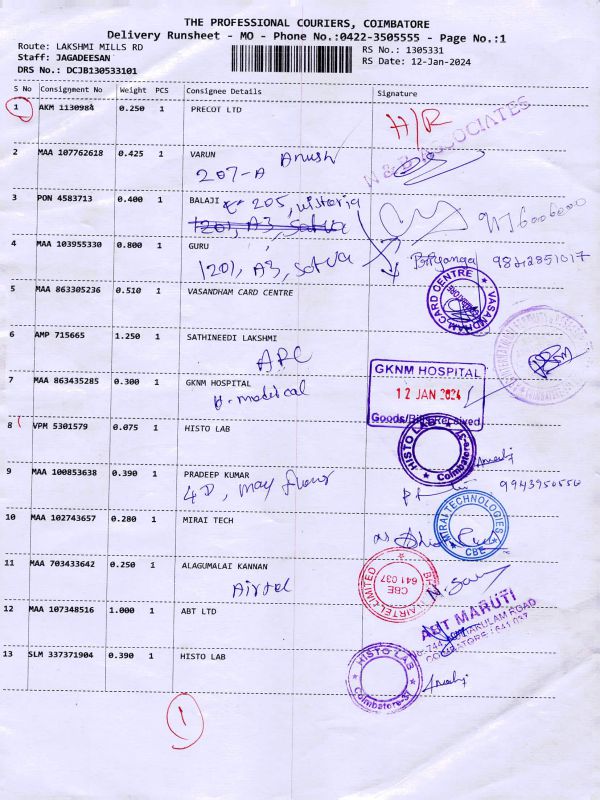 THE PROFESSIONAL COURIERS, COIMBATORE
Delivery Runsheet - MO - Phone No.:0422-3505555 - Page No.:1
Route: LAKSHMI MILLS RD
RS No.: 1305331
Staff: JAGADEESAN
RS Date: 12-Jan-2024
DRS No.: DCJB130533101
S No Consignment No Weight PCS Consignee Details Signature
1 AKM 1130984 0.250 1 PRECOT LTD
H/R
ASSOCIATES
2 MAA 107762618 0.425 1 VARUN
Anush
207-A
3 PON 4583713 0.400 1 BALAJI
205, victoria
1201, A3, Satva
4 MAA 103955330 0.800 1 GURU
1201, A3, Satva
Priyanga 9842851017
5 MAA 863305236 0.510 1 VASANDHAM CARD CENTRE
VASANDHAM CARD CENTRE
6 AMP 715665 1.250 1 SATHINEEDI LAKSHMI
ARC
7 MAA 863435285 0.300 1 GKNM HOSPITAL
B-medical
GKNM HOSPITAL
12 JAN 2024
Goods/Bill Received
8 VPM 5301579 0.075 1 HISTO LAB
HISTO LAB
Coimbatore-37
9 MAA 100853638 0.390 1 PRADEEP KUMAR
4D, may flower
9943950550
10 MAA 102743657 0.280 1 MIRAI TECH
MIRAI TECHNOLOGIES
CBE
11 MAA 703433642 0.250 1 ALAGUMALAI KANNAN
Airtel
CBE
641 037
AIRTEL LIMITED
12 MAA 107348516 1.000 1 ABT LTD
ABT MARUTI
COIMBATORE - 641 037
13 SLM 337371904 0.390 1 HISTO LAB
HISTO LAB
Coimbatore-37
1